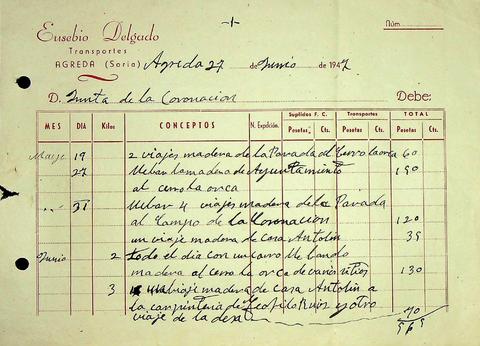 -1-
Eusebio Delgado
Núm.
Transportes
AGREDA (Soria) Agreda 27 de Junio de 1947
D. Junta de la Coronacion Debe:
MES DIA Kilos CONCEPTOS N. Expdción. Suplidos F. C. Transportes TOTAL
Pesetas Cts. Pesetas Cts. Pesetas Cts.
Mayo 19 2 viajes madera de la Pavada al Cerro la orca 60
27 llebar la madera de Ayuntamiento 190
al cerro la orca
31 llebar 4 viajes madera de la Pavada
al Campo de la Coronacion 120
un viaje madera de casa Antolin 35
Junio 2 todo el dia con un carro llebando
madera al cerro la orca de varios sitios 130
3 un viaje madera de casa Antolin a
la carpinteria de Teofilo Ruiz y otro
viaje de la 70